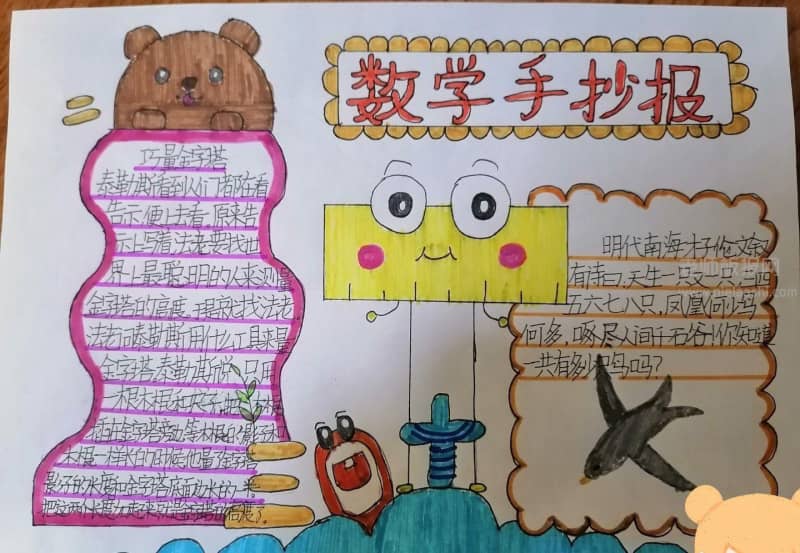 数学手抄报
巧量金字塔
泰勒斯看到人们都在看
告示,便上去看。原来告
示上写着法老要找世
界上最聪明的人来测量
金字塔的高度。于是就找法老
法老问泰勒斯用什么工具来量
金字塔。泰勒斯说只用
一根木棍
木棍一样长的时候他量了金字塔
影子的长度和金字塔底面边长的一半
把这两个长度加起来就是金字塔的高度了。
明代南海才子伦文叙
有诗曰,天生一只又一只,三四
五六七八只,凤凰何少鸟
何多,啄尽人间千石谷!你知道
一共有多少只鸟吗?